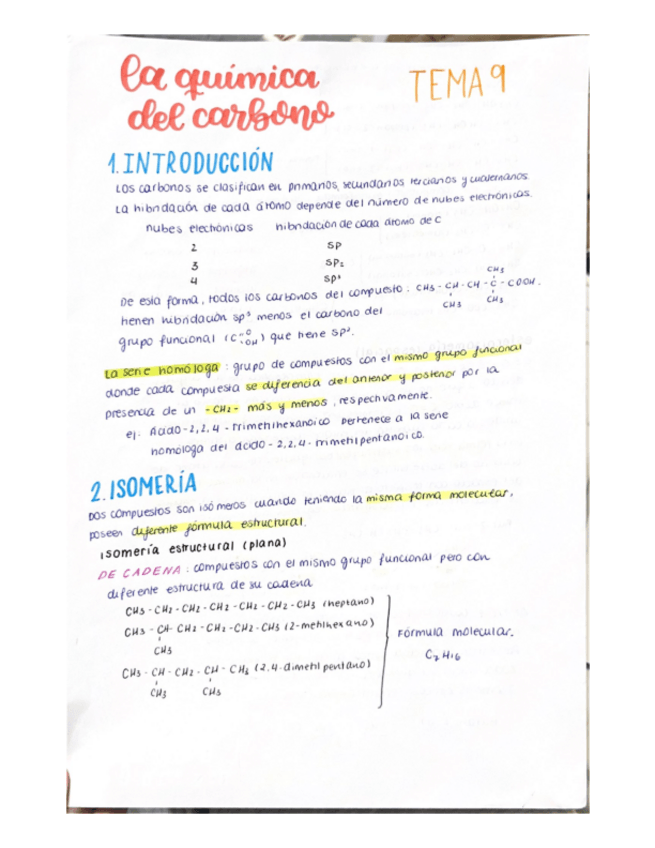 la química
del carbono
TEMA 9
1. INTRODUCCIÓN
Los carbonos se clasifican en primarios, secundarios terciarios y cuaternarios.
La hibridación de cada átomo depende del número de nubes electrónicas.
nubes electrónicas hibridación de cada átomo de C
2 sp
3 sp²
4 sp³
CH3
De esta forma, todos los carbonos del compuesto: CH3 - CH - CH - C - COOH.
CH3 CH3
tienen hibridación sp³ menos el carbono del
grupo funcional (C=O OH) que tiene sp².
La serie homóloga: grupo de compuestos con el mismo grupo funcional
donde cada compuesta se diferencia del anterior y posterior por la
presencia de un -CH2- más y menos, respectivamente.
ej. Ácido-2,2,4-trimetilhexanoico pertenece a la serie
homóloga del ácido-2,2,4-trimetilpentanoico.
2. ISOMERÍA
Dos compuestos son isómeros cuando teniendo la misma forma molecular,
poseen diferente fórmula estructural.
isomería estructural (plana)
DE CADENA: compuestos con el mismo grupo funcional pero con
diferente estructura de su cadena
CH3 - CH2 - CH2 - CH2 - CH2 - CH2 - CH3 (heptano)
CH3 - CH - CH2 - CH2 - CH2 - CH3 (2-metilhexano)
CH3
CH3 - CH - CH2 - CH - CH3 (2,4-dimetil pentano)
CH3 CH3
Fórmula molecular.
C7H16